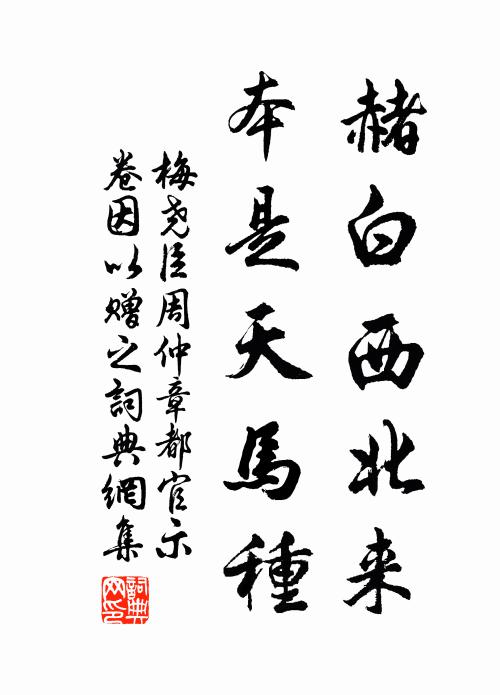 赭白西北来
本是天馬種
梅尧臣周仲章都官示
卷因以赠之詞典網集
詞典
网印